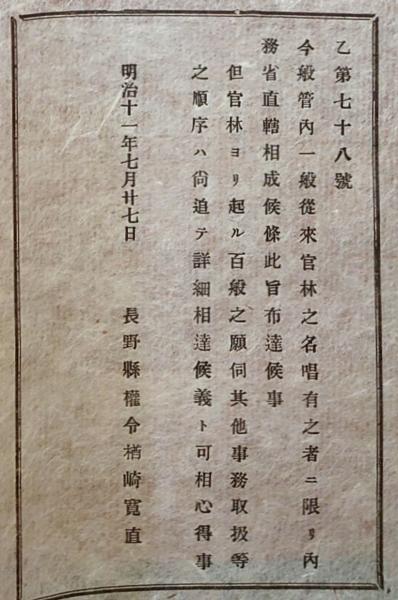 乙第七十八號
今般管內一般從來官林之名唱有之者ニ限リ內
務省直轄相成候條此旨布達候事
但官林ヨリ起ル百般之願伺其他事務取扱等
之順序ハ尙追テ詳細相達候義ト可相心得事
明治十一年七月廿七日　長野縣權令楢崎寬直